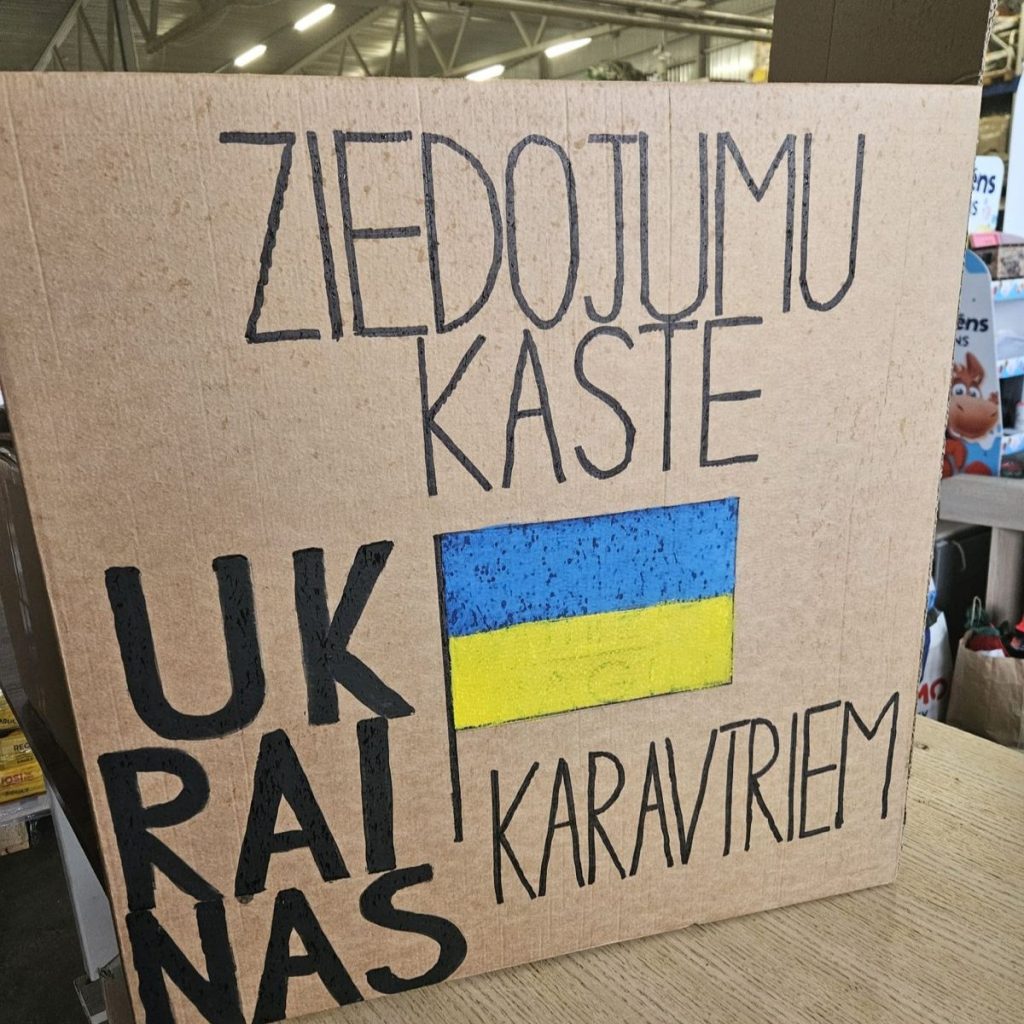 ZIEDOJUMU
KASTE
UK
RAI
NAS
KARAVTRIEM
ēns
ēns
NS